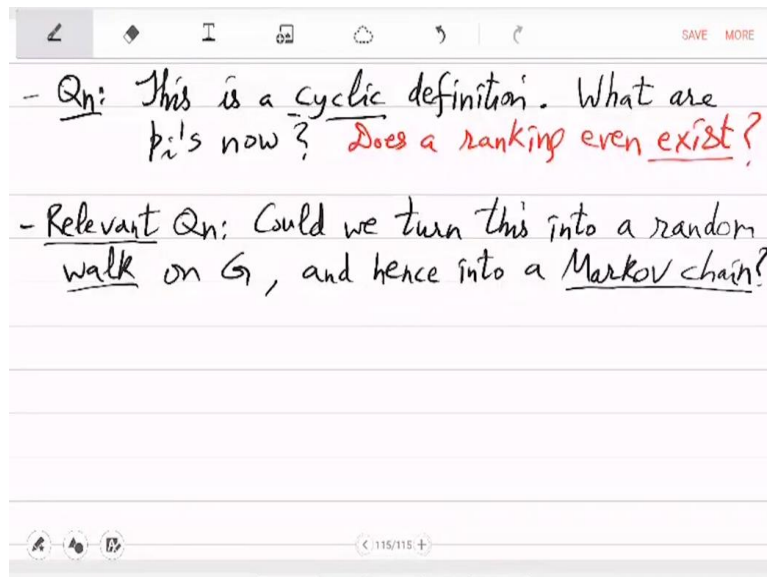 SAVE MORE
- Qn: This is a cyclic definition. What are
pi's now? Does a ranking even exist?
- Relevant Qn: Could we turn this into a random
walk on G, and hence into a Markov chain?
115/115